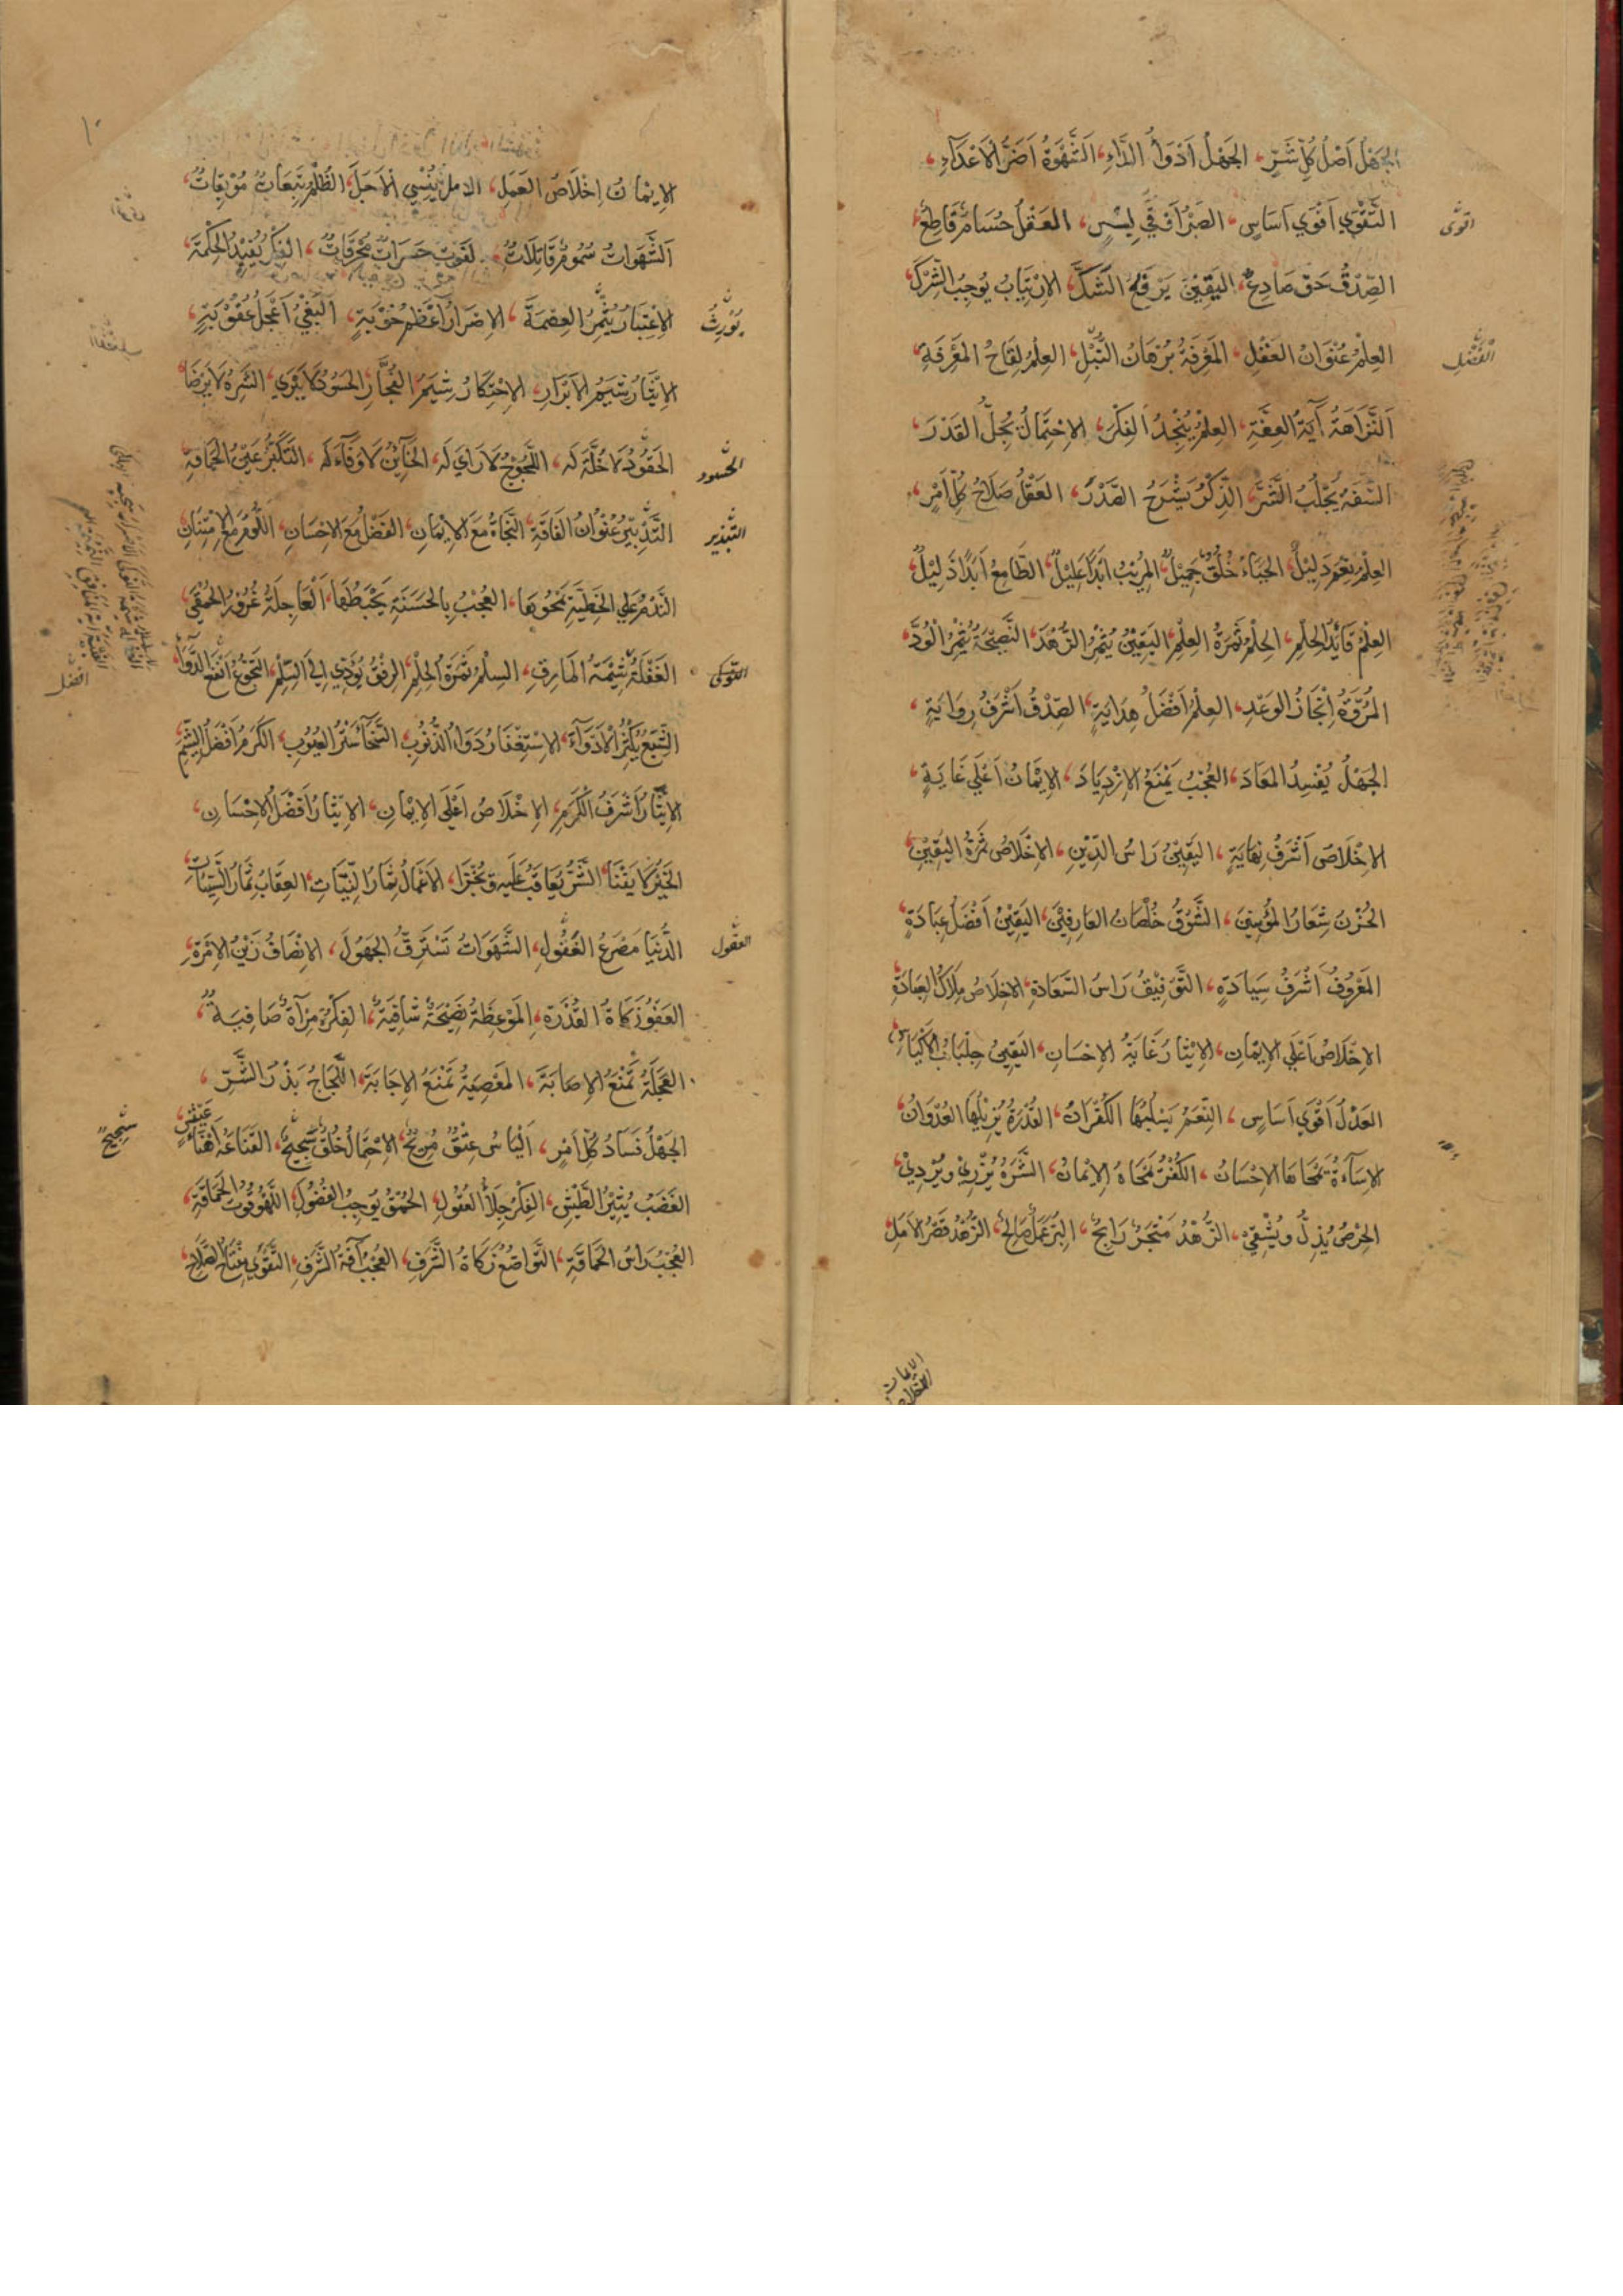 الجَهْلُ اَصْلُ كُلِّ شَرٍّ، الجَهْلُ اَدْوَأُ الدَّاءِ، اَلشَّهْوَةُ اَضَرُّ الاَعْدَآءِ،
التَّقْوَي اَقْوَي اَسَاسٍ، الصَّبْرُ اَقْوَي لِبَاسٍ، العَقْلُ حُسَامٌ قَاطِعٌ،
اقوى
الصِّدْقُ حَقٌّ صَادِعٌ، اليَقِيْنُ يَرْفَعُ الشَّكَّ، الاِرْتِيَابُ يُوجِبُ الشِّرْكَ،
العِلْمُ عُنْوَانُ العَقْلِ، المَعْرِفَةُ بُرْهَانُ النُّبْلِ، العِلْمُ لِقَاحُ المَعْرِفَةِ،
الْفَضْلِ
اَلنَّزَاهَةُ آيَةُ العِفَّةِ، العِلْمُ يُنْجِدُ الفِكْرَ، الاِحْتِمَالُ يُجِلُّ القَدْرَ،
السَّفَهُ يَجْلُبُ الشَّرَّ، الذِّكْرُ يَشْرَحُ الصَّدْرَ، العَقْلُ صَلَاحُ كُلِّ اَمْرٍ،
العِلْمُ نِعْمَ دَلِيْلٌ، الحَيَاءُ خُلُقٌ جَمِيْلٌ، المُرِيْبُ اَبَدًا عَلِيْلٌ، الطَّامِعُ اَبَدًا ذَلِيْلٌ،
العِلْمُ قَايِدُ الحِلْمِ، الحِلْمُ ثَمَرَةُ العِلْمِ، اليَقِيْنُ يُثْمِرُ الزُّهْدَ، النَّصِيْحَةُ يُثْمِرُ الْوُدَّ،
المُرُوَّةُ اِنْجَازُ الوَعْدِ، العِلْمُ اَفْضَلُ هِدَايَةٍ، الصِّدْقُ اَشْرَفُ رِوَايَةٍ،
الجَهْلُ يُفْسِدُ المَعَادَ، العُجْبُ يَمْنَعُ الاِزْدِيَادَ، الاِيْمَانُ اَعْلَي غَايَةٍ،
الاِخْلَاصُ اَشْرَفُ نِهَايَةٍ، اليَقِيْنُ رَاسُ الدِّيْنِ، الاِخْلَاصُ ثَمَرَةُ اليَقِيْنِ،
الحُزْنُ شِعَارُ المُؤْمِنِيْنَ، الشَّوْقُ خُلْصَانُ العَارِفِيْنَ، اليَقِيْنُ اَفْضَلُ عِبَادَةٍ،
المَعْرُوفُ اَشْرَفُ سِيَادَةٍ، التَّوْفِيْقُ رَاسُ السَّعَادَةِ، الاِخْلَاصُ مِلَاكُ العِبَادَةِ،
الاِخْلَاصُ اَعْلَي الاِيْمَانِ، الاِيْثَارُ غَايَةُ الاِحْسَانِ، اليَقِيْنُ جِلْبَابُ الاَكْيَاسِ،
العَدْلُ اَقْوَي اَسَاسٍ، النِّعَمُ يَسْلُبُهَا الكُفْرَانُ، القُدْرَةُ يُزِيْلُهَا العُدْوَانُ،
الاِسَآءَةُ يَمْحَاهَا الاِحْسَانُ، الكُفْرُ يَمْحَاهُ الاِيْمَانُ، الشَّرَهُ يُزْرِيْ وَيُرْدِيْ،
الحِرْصُ يُذِلُّ وَيُشْقِيْ، الزُّهْدُ مَتْجَرٌ رَابِحٌ، البِرُّ عَمَلٌ صَالِحٌ، الزُّهْدُ قَصْرُ الاَمَلِ
١٠
الاِيْمَانُ اِخْلَاصُ العَمَلِ، الامل يُنْسِي الْاَجَلَ، الظُّلْمُ تَبِعَاتٌ مُوْبِقَاتٌ،
اَلشَّهَوَاتُ سُمُومٌ قَاتِلَاتٌ، الفَوْتُ حَسَرَاتٌ مُحْرِقَاتٌ، الفِكْرُ يُفِيْدُ الحِكْمَةَ،
الاِعْتِبَارُ يُثْمِرُ العِصْمَةَ، الاِصْرَارُ اَعْظَمُ حَوْبَةٍ، اَلبَغْيُ اَعْجَلُ عُقُوْبَةٍ،
يُوْرِثُ
الاِيْثَارُ شِيَمُ الاَبْرَارِ، الاِحْتِكَارُ شِيَمُ الفُجَّارِ، الحَسُوْدُ لَا يَبْرَي، الشَّرِهُ لَا يَرْضَا،
الحَقُوْدُ لَا خُلَّةَ لَهُ، اللَّجُوْجُ لَا رَاْيَ لَهُ، الخَآيِنُ لَا وَفَآءَ لَهُ، التَّكَبُّرُ عَيْنُ الحَمَاقَةِ،
الحَسُود
التَّبْذِيْرُ عُنْوَانُ الفَاقَةِ، النَّجَاةُ مَعَ الاِيْمَانِ، الفَضْلُ مَعَ الاِحْسَانِ، اللُّؤْمُ مَعَ الاِمْتِنَانِ
التبذير
النَّدَمُ عَلَي الخَطِيْئَةِ يَمْحُوهَا، العُجْبُ بِالحَسَنَةِ يُحْبِطُهَا، اَلْعَاجِلَةُ غُرُورُ الحَمْقَي،
الغَفْلَةُ شِيْمَةُ، السِّلْمُ ثَمَرَةُ الحِلْمِ، الرِّفْقُ يُؤَدِّي اِلَي السِّلْمِ، التَجَوُّعُ اَنْفَعُ الدَّوَآءِ،
النوكى
الشِّبَعُ يُكْثِرُ الْاَدْوَآءَ، الاِسْتِغْفَارُ دَوَاءُ الذُّنُوْبِ، السَّخَآءُ سَتْرُ العُيُوْبِ، الكَرَمُ اَفْضَلُ الشِّيَمِ
الاِيْثَارُ اَشْرَفُ الْكَرَمِ، الاِخْلَاصُ اَعْلَي الاِيْمَانِ، الاِيْثَارُ اَفْضَلُ الاِحْسَانِ،
الخَيْرُ لَا يَفْنَا، الشَّرُّ يُعَاقَبُ عَلَيْهِ وَيُجْزَا، الاَعْمَالُ ثِمَارُ النِّيَّاتِ، العِقَابُ ثِمَارُ السَّيِّئَاتِ،
الدُّنْيَا مَصْرَعُ العُقُولِ، الشَّهَوَاتُ تَسْتَرِقُّ الجَهُولَ، الاِنْصَافُ زَيْنُ الاِمْرَةِ
العقول
العَفْوُ زَكَاةُ القُدْرَةِ، المَوْعِظَةُ نَصِيْحَةٌ شَافِيَةٌ، الفِكْرُ مِرْآةٌ صَافِيَةٌ،
العَجَلَةُ تَمْنَعُ الاِصَابَةَ، المَعْصِيَةُ تَمْنَعُ الاِجَابَةَ، اللَّجَاجُ بَذْرُ الشَّرِّ،
الجَهْلُ فَسَادُ كُلِّ اَمْرٍ، اَلْيَاسُ عِتْقٌ مُرِيْحٌ، الاِحْتِمَالُ خُلُقٌ سَجِيحٌ، القَنَاعَةُ اَهْنَأُ عَيْشٍ،
سَجِيحٌ
الغَضَبُ يُثِيْرُ الطَّيْشَ، الفِكْرُ جَلَاءُ العُقُولِ، الحُمْقُ يُوجِبُ الفُضُولَ، اللَّهْوُ قُوْتُ الحَمَاقَةِ،
العُجْبُ رَاسُ الحَمَاقَةِ، التَّوَاضُعُ زَكَاةُ الشَّرَفِ، العُجْبُ آفَةُ الشَّرَفِ، التَّقْوَي مِفْتَاحُ الصَّلَاحِ،